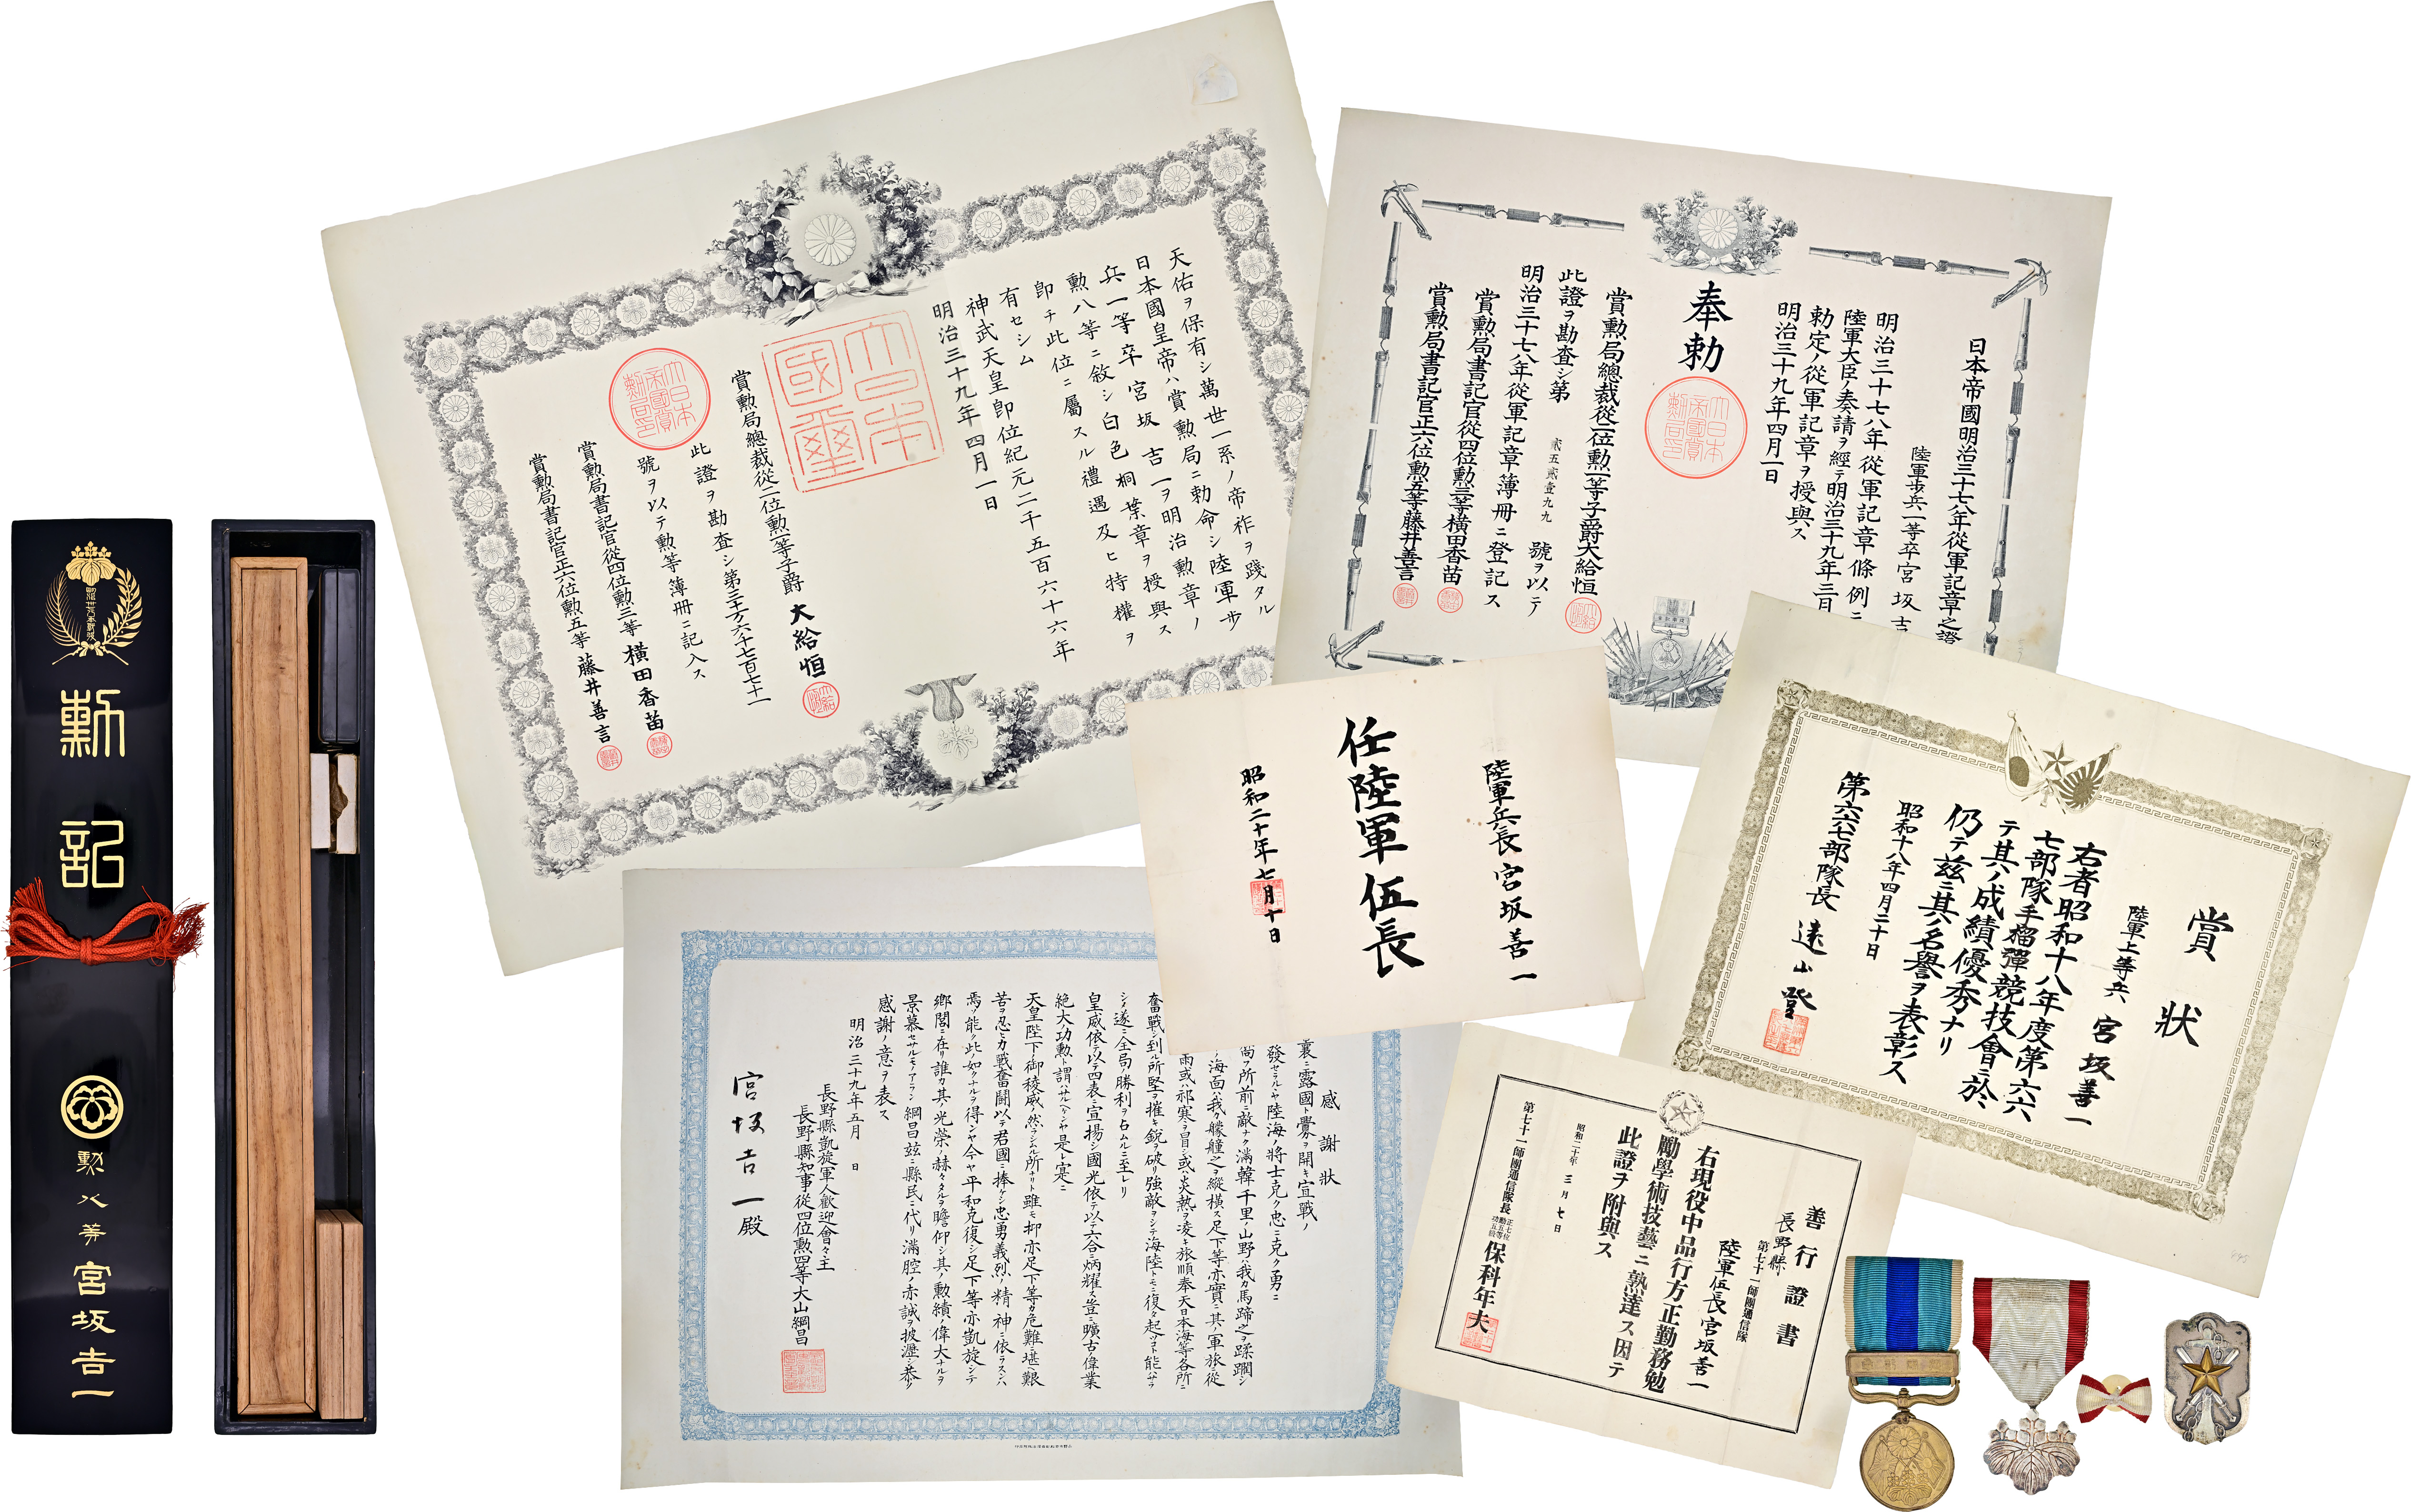 勲記
勲八等宮坂吉一
天佑ヲ保有シ萬世一系ノ帝祚ヲ踐タル
日本國皇帝ハ賞勲局ニ勅命シ陸軍歩
兵一等卒宮坂吉一ヲ明治勲章ノ
勲八等ニ敘シ白色桐葉章ヲ授與ス
即チ此位ニ屬スル禮遇及ヒ特權ヲ
有セシム
神武天皇即位紀元二千五百六十六年
明治三十九年四月一日
大日本國璽
賞勲局總裁從二位勲一等子爵大給恒
此證ヲ勘査シ第三十六万七百七十一
號ヲ以テ勲等簿冊ニ記入ス
賞勲局書記官從四位勲三等橫田香苗
賞勲局書記官正六位勲五等藤井善言
大日本帝國賞勲局印
日本帝國明治三十七八年從軍記章之證
陸軍歩兵一等卒宮坂吉
明治三十七八年從軍記章條例ニ
陸軍大臣ノ奏請ヲ經テ明治三十九年三月
勅定ノ從軍記章ヲ授與ス
明治三十九年四月一日
奉勅
大日本帝國賞勲局印
賞勲局總裁從二位勲一等子爵大給恒
此證ヲ勘査シ第
貳五貳壹九九
號ヲ以テ
明治三十七八年從軍記章簿冊ニ登記ス
賞勲局書記官從四位勲三等橫田香苗
賞勲局書記官正六位勲五等藤井善言
陸軍兵長宮坂善一
任陸軍伍長
昭和二十年七月十日
賞狀
陸軍上等兵宮坂善一
右者昭和十八年度第六六
七部隊手榴彈競技會ニ於
テ其ノ成績優秀ナリ
仍テ茲ニ其ノ名譽ヲ表彰ス
昭和十八年四月二十日
第六六七部隊長遠山登
感謝狀
曩ニ露國ト釁ヲ開キ宣戰ノ
發セラルヽヤ陸海ノ將士克ク忠ニ克ク勇ニ
尚フ所前ニ敵ナク滿韓千里ノ山野ハ我カ馬蹄之ヲ蹂躙シ
海面ハ我カ艨艟之ヲ縱橫ス足下等亦實ニ其ノ軍旅ニ從
雨或ハ祁寒ヲ冒シ或ハ炎熱ヲ凌キ旅順奉天日本海等各所ニ
奮戰シ到ル所堅ヲ摧キ銳ヲ破リ強敵ヲシテ海陸トモニ復タ起ツコト能ハサラ
シメ遂ニ全局ノ勝利ヲ占ムルニ至レリ
皇威依テ以テ四表ニ宣揚シ國光依テ以テ六合ニ炳耀ス豈ニ曠古ノ偉業
絶大ノ功勲ト謂ハサルヘケンヤ是レ寔ニ
天皇陛下ノ御稜威ノ然ラシムル所ナリト雖モ抑亦足下等カ危難ニ堪ヘ艱
苦ヲ忍ヒ力戰奮鬪以テ君國ニ捧ケシ忠勇義烈ノ精神ニ依ラスンハ
焉ソ能ク此ノ如クナルヲ得ンヤ今ヤ平和克復シ足下等亦凱旋シテ
鄕閭ニ在リ誰カ其ノ光榮ノ赫々タルヲ瞻仰シ其ノ勲績ノ偉大ナルヲ
景慕セサルモノアランヤ綱昌茲ニ縣民ニ代リ滿腔ノ赤誠ヲ披瀝シ恭ク
感謝ノ意ヲ表ス
明治三十九年五月 日
長野縣凱旋軍人歡迎會々主
長野縣知事從四位勲四等大山綱昌
宮坂吉一殿
善行證書
長野縣
第七十一師團通信隊
陸軍伍長宮坂善一
右現役中品行方正勤務勉
勵學術技藝ニ熟達ス因テ
此證ヲ附與ス
昭和二十年三月七日
第七十一師團通信隊長
正七位
勲五等
功五級
保科年夫